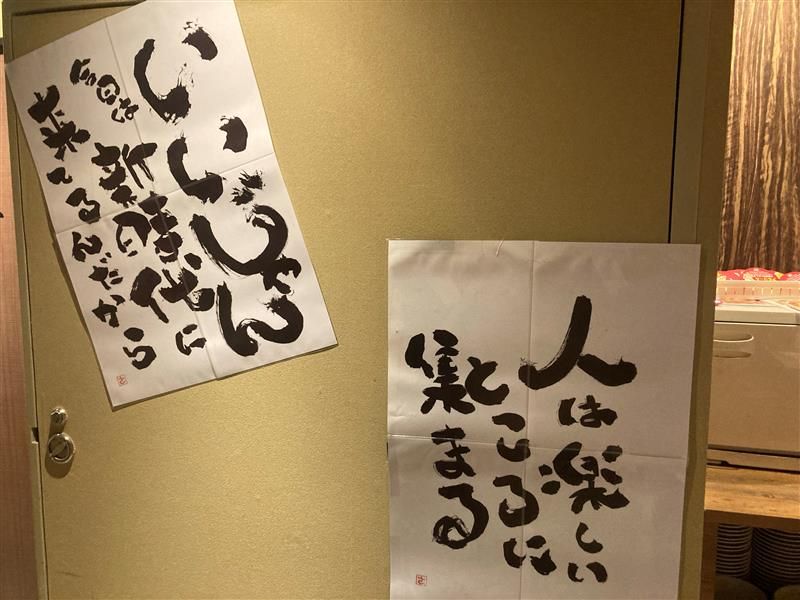 いいじゃん
今日は新時代に
来てるんだから
人は楽しい
ところに
集まる